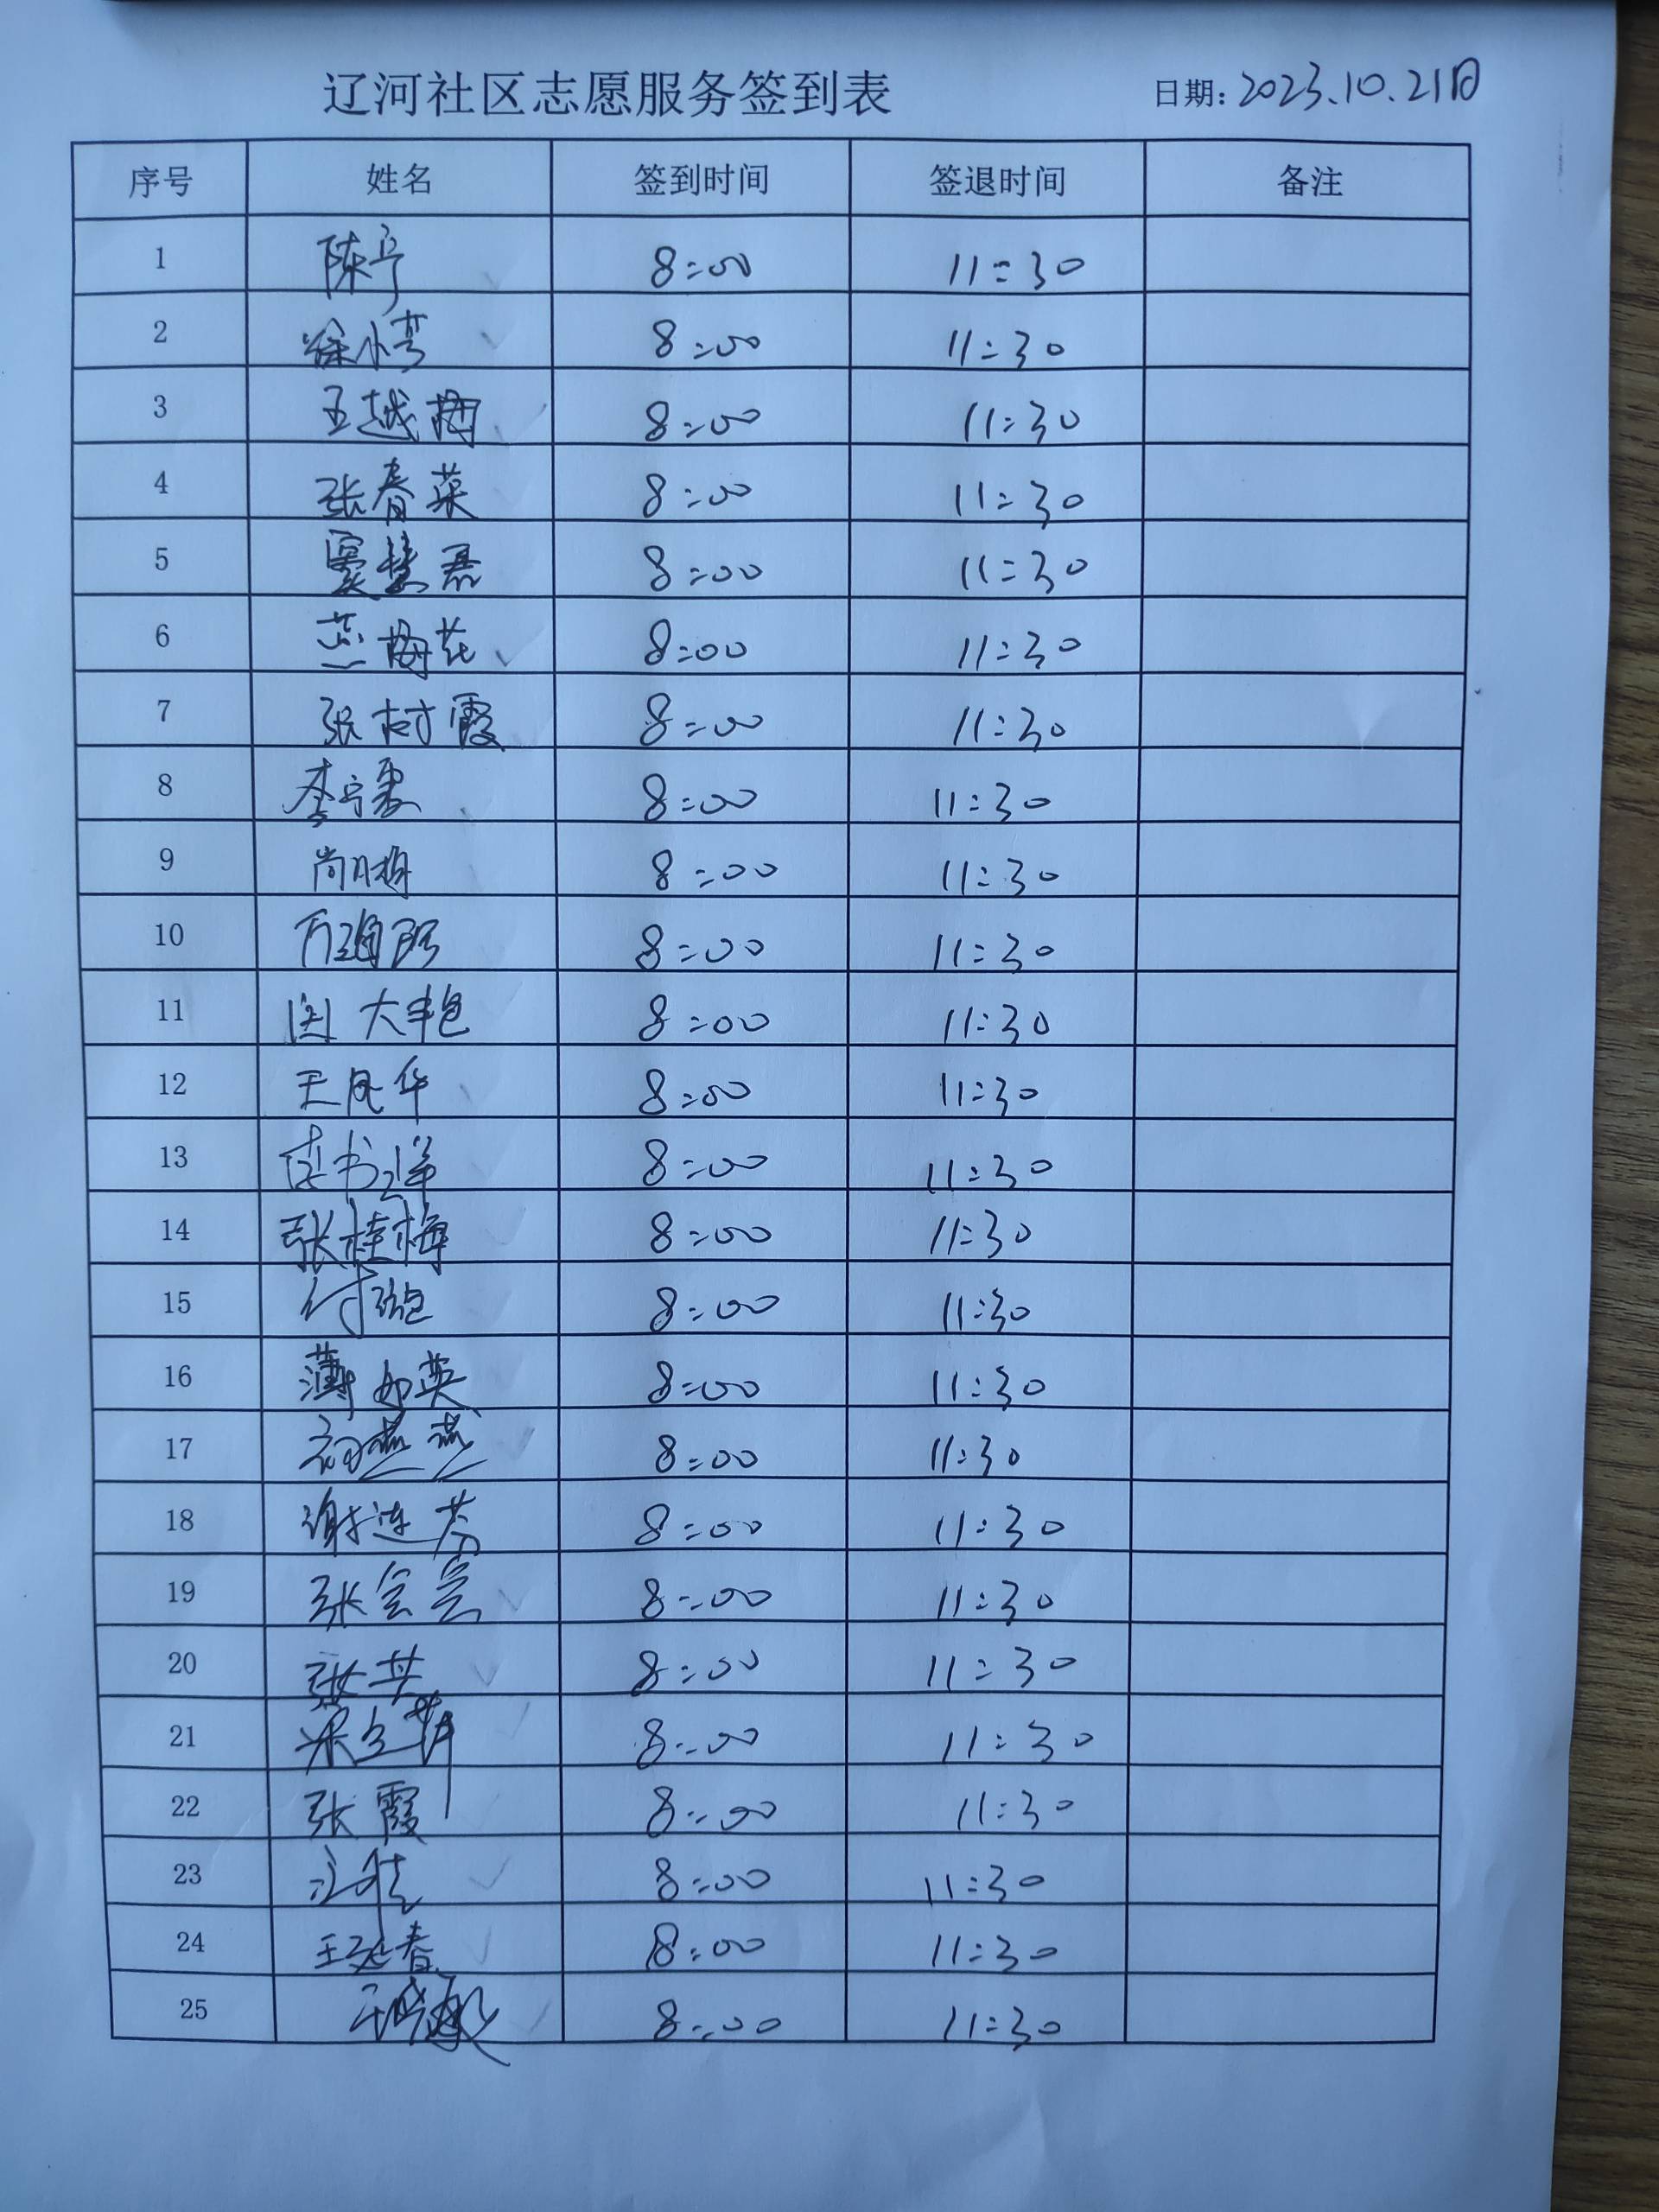 辽河社区志愿服务签到表 日期：2023.10.21日
序号 姓名 签到时间 签退时间 备注
1 陈宁 8:00 11:30
2 徐小 8:00 11:30
3 王越梅 8:00 11:30
4 张春菜 8:00 11:30
5 窦慧磊 8:00 11:30
6 兰梅花 8:00 11:30
7 张树霞 8:00 11:30
8 李宁 8:00 11:30
9 尚月梅 8:00 11:30
10 8:00 11:30
11 闵大艳 8:00 11:30
12 王凤华 8:00 11:30
13 书 8:00 11:30
14 张桂梅 8:00 11:30
15 付 8:00 11:30
16 薄如英 8:00 11:30
17 初燕燕 8:00 11:30
18 谢连芬 8:00 11:30
19 张会会 8:00 11:30
20 张 8:00 11:30
21 8:00 11:30
22 张霞 8:00 11:30
23 8:00 11:30
24 王延春 8:00 11:30
25 8:00 11:30